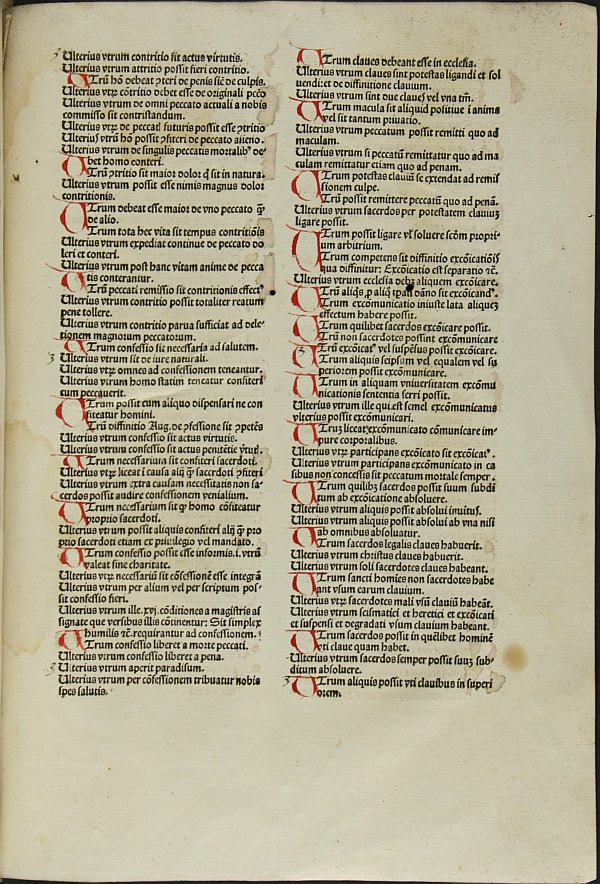 Ulterius vtrum contritio sit actus virtutis.
Ulterius vtrum attritio possit fieri contritio.
UTrũ hõ debeat ↄteri de penis siĉ de culpis.
Ulterius vtrꝫ cõtritio debet esse de originali pctõ
Ulterius vtrum de omni peccato actuali a nobis
commisso sit contristandum.
Ulterius vtrꝫ de peccaꝭ futuris possit esse ↄtritio
Ulterius vtrũ hõ possit ↄteri de peccato alieno.
Ulterius vtrum de singulis peccatis mortalibꝰ de-
bet homo conteri.
UTrũ ↄtritio sit maior dolor q̃ sit in natura.
Ulterius vtrum possit esse nimis magnus dolor
contritionis.
UTrum debeat esse maior de vno peccato q̃ꝫ
de alio.
UTrum tota hec vita sit tempus contritiõis
Ulterius vtrum expediat continue de peccato do
leri et conteri.
Ulterius vtrum post hanc vitam anime de pecca
tis conterantur.
UTrũ peccati remissio sit contritionis effectꝰ
Ulterius vtrum contritio possit totaliter reatum
pene tollere.
Ulterius vtrum contritio parua sufficiat ad dele-
tionem magnorum peccatorum.
UTrum confessio sit necessaria ad salutem.
Ulterius vtrum sit de iure naturali.
Ulterius vtrꝫ omnes ad confessionem teneantur.
Ulterius vtrum homo statim teneatur confiteri
cum peccauerit.
UTrum possit cum aliquo dispensari ne con
fiteatur homini.
UTrũ diffinitio Aug. de ↄfessione sit ↄpetẽs
Ulterius vtrum confessio sit actus virtutis.
Ulterius vtrum confessio sit actus penitẽtie vtutꝭ.
UTrum necessarium sit confiteri sacerdoti.
Ulterius vtrꝫ liceat i causa aliq̃ q̃ sacerdoti ↄfiteri
Ulterius vtrum extra causam necessitatis non sa-
cerdos possit audire confessionem venialium.
UTrum necessarium sit ꝙ homo cõfiteatur
proprio sacerdoti.
Ulterius vtrum possit aliquis confiteri alij q̃ꝫ pro
prio sacerdoti etiam ex priuilegio vel mandato.
UTrum confessio possit esse informis. i. vtrũ
valeat sine charitate.
Ulterius vtrꝫ necessariũ sit cõfessionẽ esse integrã
Ulterius vtrum per alium vel per scriptum pos-
sit confessio fieri.
Ulterius vtrum ille .xvj. cõditiones a magistris as
signate que versibus illis cõtinentur: Sit simplex
humilis ⁊c̃. requirantur ad confessionem.
UTrum confessio liberet a morte peccati.
Ulterius vtrum confessio liberet a pena.
Ulterius vtrum aperit paradisum.
Ulterius vtrum per cõfessionem tribuatur nobis
spes salutis.
UTrum claues debeant esse in ecclesia.
Ulterius vtrum claues sint potestas ligandi et sol
uendi: et de diffinitione clauium.
Ulterius vtrum sint due claues vel vna tm̃.
UTrum macula sit aliquid positiue i anima
vel sit tantum priuatio.
Ulterius vtrum peccatum possit remitti quo ad
maculam.
Ulterius vtrum si peccatũ remittatur quo ad ma
culam remittatur etiam quo ad penam.
UTrum potestas clauiũ se extendat ad remis
sionem culpe.
UTrũ possit remittere peccatũ quo ad penã.
Ulterius vtrum sacerdos per potestatem clauiuꝫ
ligare possit.
UTrum possit ligare vl̓ soluere scd̓m propri-
um arbitrium.
UTrum competens sit diffinitio excõicatiõis
qua diffinitur: Excõicatio est separatio ⁊c̃.
Ulterius vtrum ecclesia debꝫ aliquem excõicare.
UTrum excõmunicatio iniuste lata aliqueꝫ
effectum habere possit.
UTrum quilibet sacerdos excõicare possit.
UTrũ non sacerdotes possint excõmunicare
UTrũ excõicatꝰ vel suspẽsus possit excõicare.
UTrum aliquis seipsum vel equalem vel su
periorem possit excõmunicare.
UTrum in aliquam vniuersitatem excõmu
nicationis sententia ferri possit.
Ulterius vtrum ille qui est semel excõmunicatus
vlterius possit excõmunicari.
UTruꝫ liceat excõmunicato cõmunicare in-
pure corporalibus.
Ulterius vtrꝫ participans excõicato sit excõicatꝰ.
Ulterius vtrum participans excõmunicato in ca
sibus non concessis sit peccatum mortale semper.
UTrum quilibꝫ sacerdos possit suum subdi
tum ab excõicatione absoluere.
Ulterius vtrum aliquis possit absolui inuitus.
Ulterius vtrum aliquis possit absolui ab vna nisi
ab omnibus absoluatur.
UTrum sacerdos legalis claues habuerit.
Ulterius vtrum christus claues habuerit.
Ulterius vtrum soli sacerdotes claues habeant.
UTrum sancti homines non sacerdotes habe
ant vsum earum clauium.
Ulterius vtrꝫ sacerdotes mali vsũ clauiũ habeãt.
Ulterius vtrum scismatici et heretici et excõicati
et suspensi et degradati vsum clauium habeant.
UTrum sacerdos possit in quẽlibet hominẽ
vti claue quam habet.
Ulterius vtrum sacerdos semper possit suuꝫ sub-
ditum absoluere.
UTrum aliquis possit vti clauibus in superi
orem.